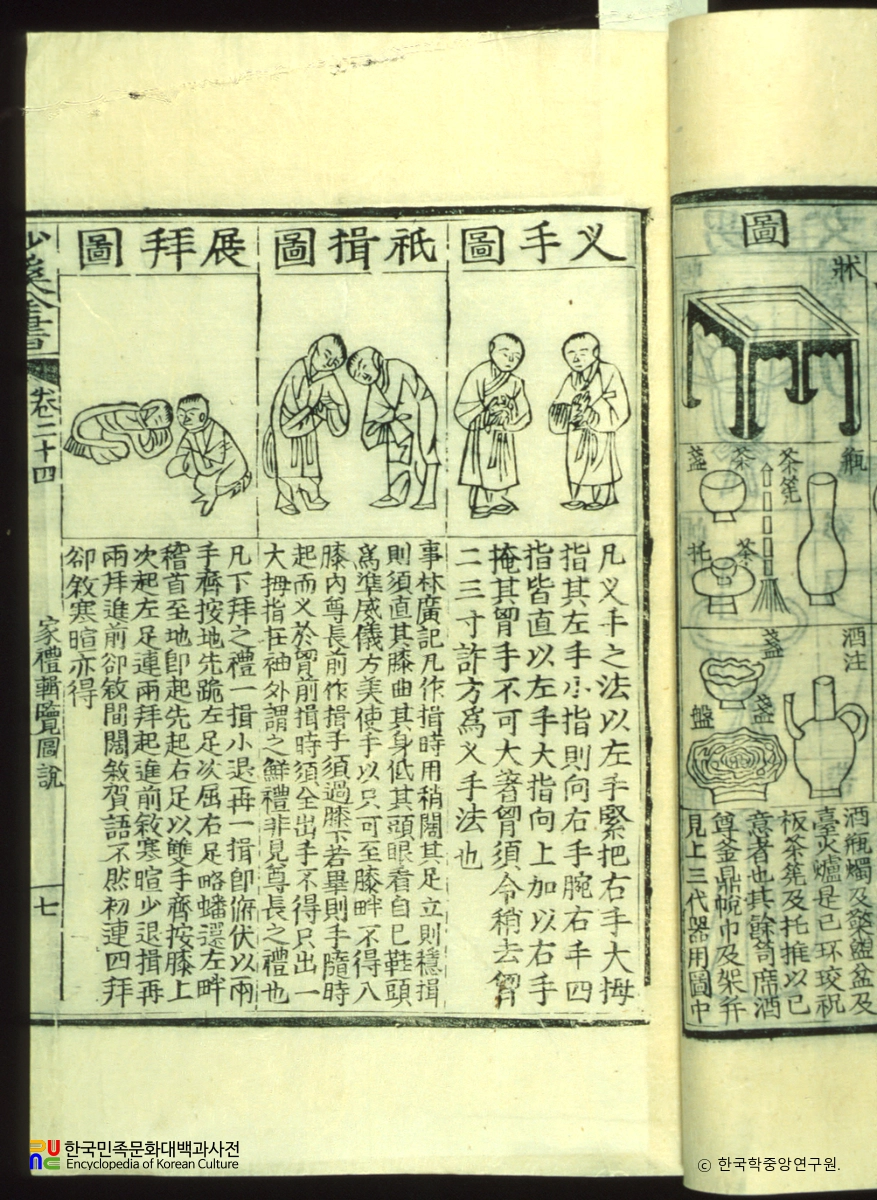 圖
牀
瓶
茶筅
茶盞
茶托
酒注
盞
盞盤
酒瓶燭及檠盥盆及
臺火爐是已环珓祝
板茶筅及托推以已
意者也其餘笥席酒
尊釜鼎帨巾及架并
見上三代器用圖中
义手圖
凡义手之法以左手緊把右手大拇
指其左手小指則向右手腕右手四
指皆直以左手大指向上加以右手
掩其胷手不可大著胷須令稍去胷
二三寸許方爲义手法也
祇揖圖
事林廣記凡作揖時用稍闊其足立則穩揖
則須直其膝曲其身低其頭眼看自已鞋頭
爲準威儀方美使手以只可至膝畔不得入
膝內尊長前作揖手須過膝下若畢則手隨時
起而义於胷前揖時須全出手不得只出一
大拇指在袖外謂之鮮禮非見尊長之禮也
展拜圖
凡下拜之禮一揖小退再一揖卽俯伏以兩
手齊按地先跪左足次屈右足略蟠還左畔
稽首至地卽起先起右足以雙手齊按膝上
次起左足連兩拜起進前敘寒暄少退揖再
兩拜進前卻敘間闊敘賀語不然初連四拜
卻敘寒暄亦得
沙溪全書
卷二十四
家禮輯覽圖說
七
한국민족문화대백과사전
Encyclopedia of Korean Culture
ⓒ 한국학중앙연구원.